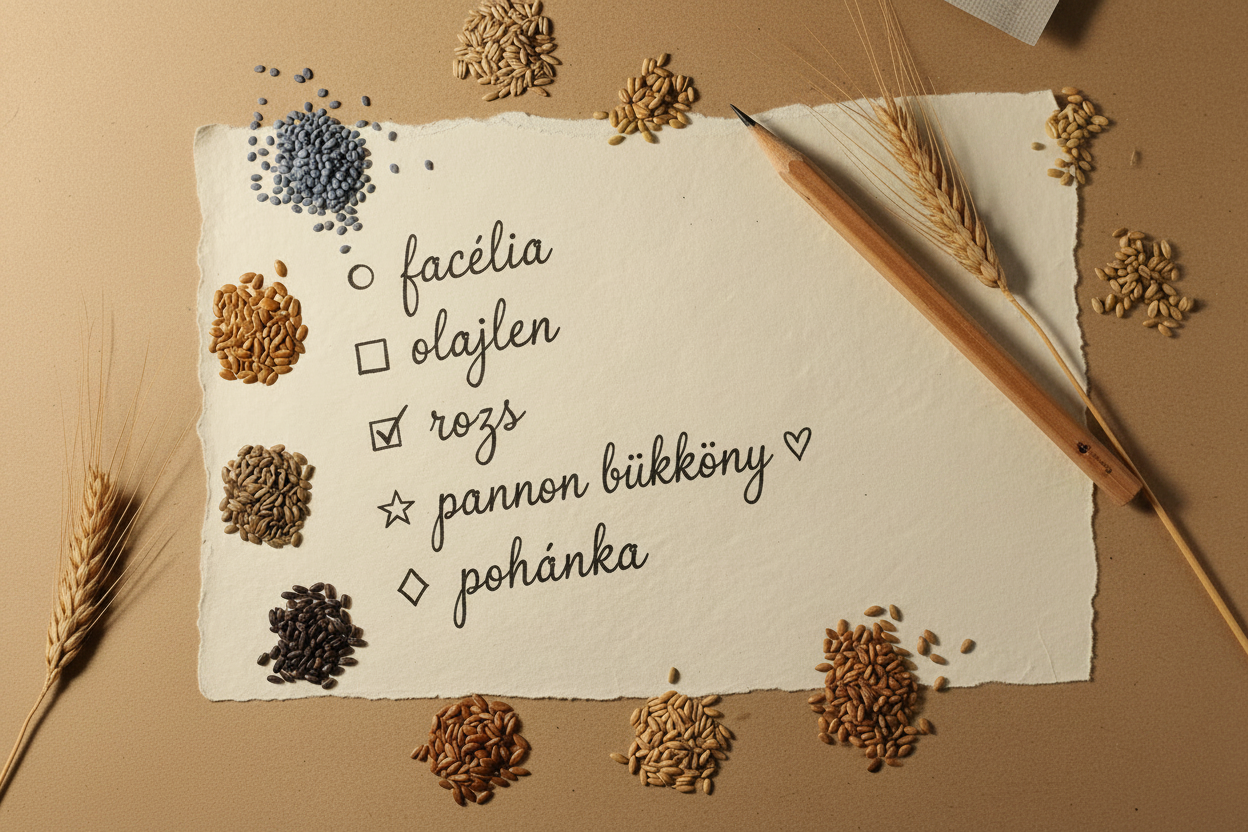 ○ facélia
□ olajlen
☑ rozs
☆ pannon bükköny ♡
◇ pohánka